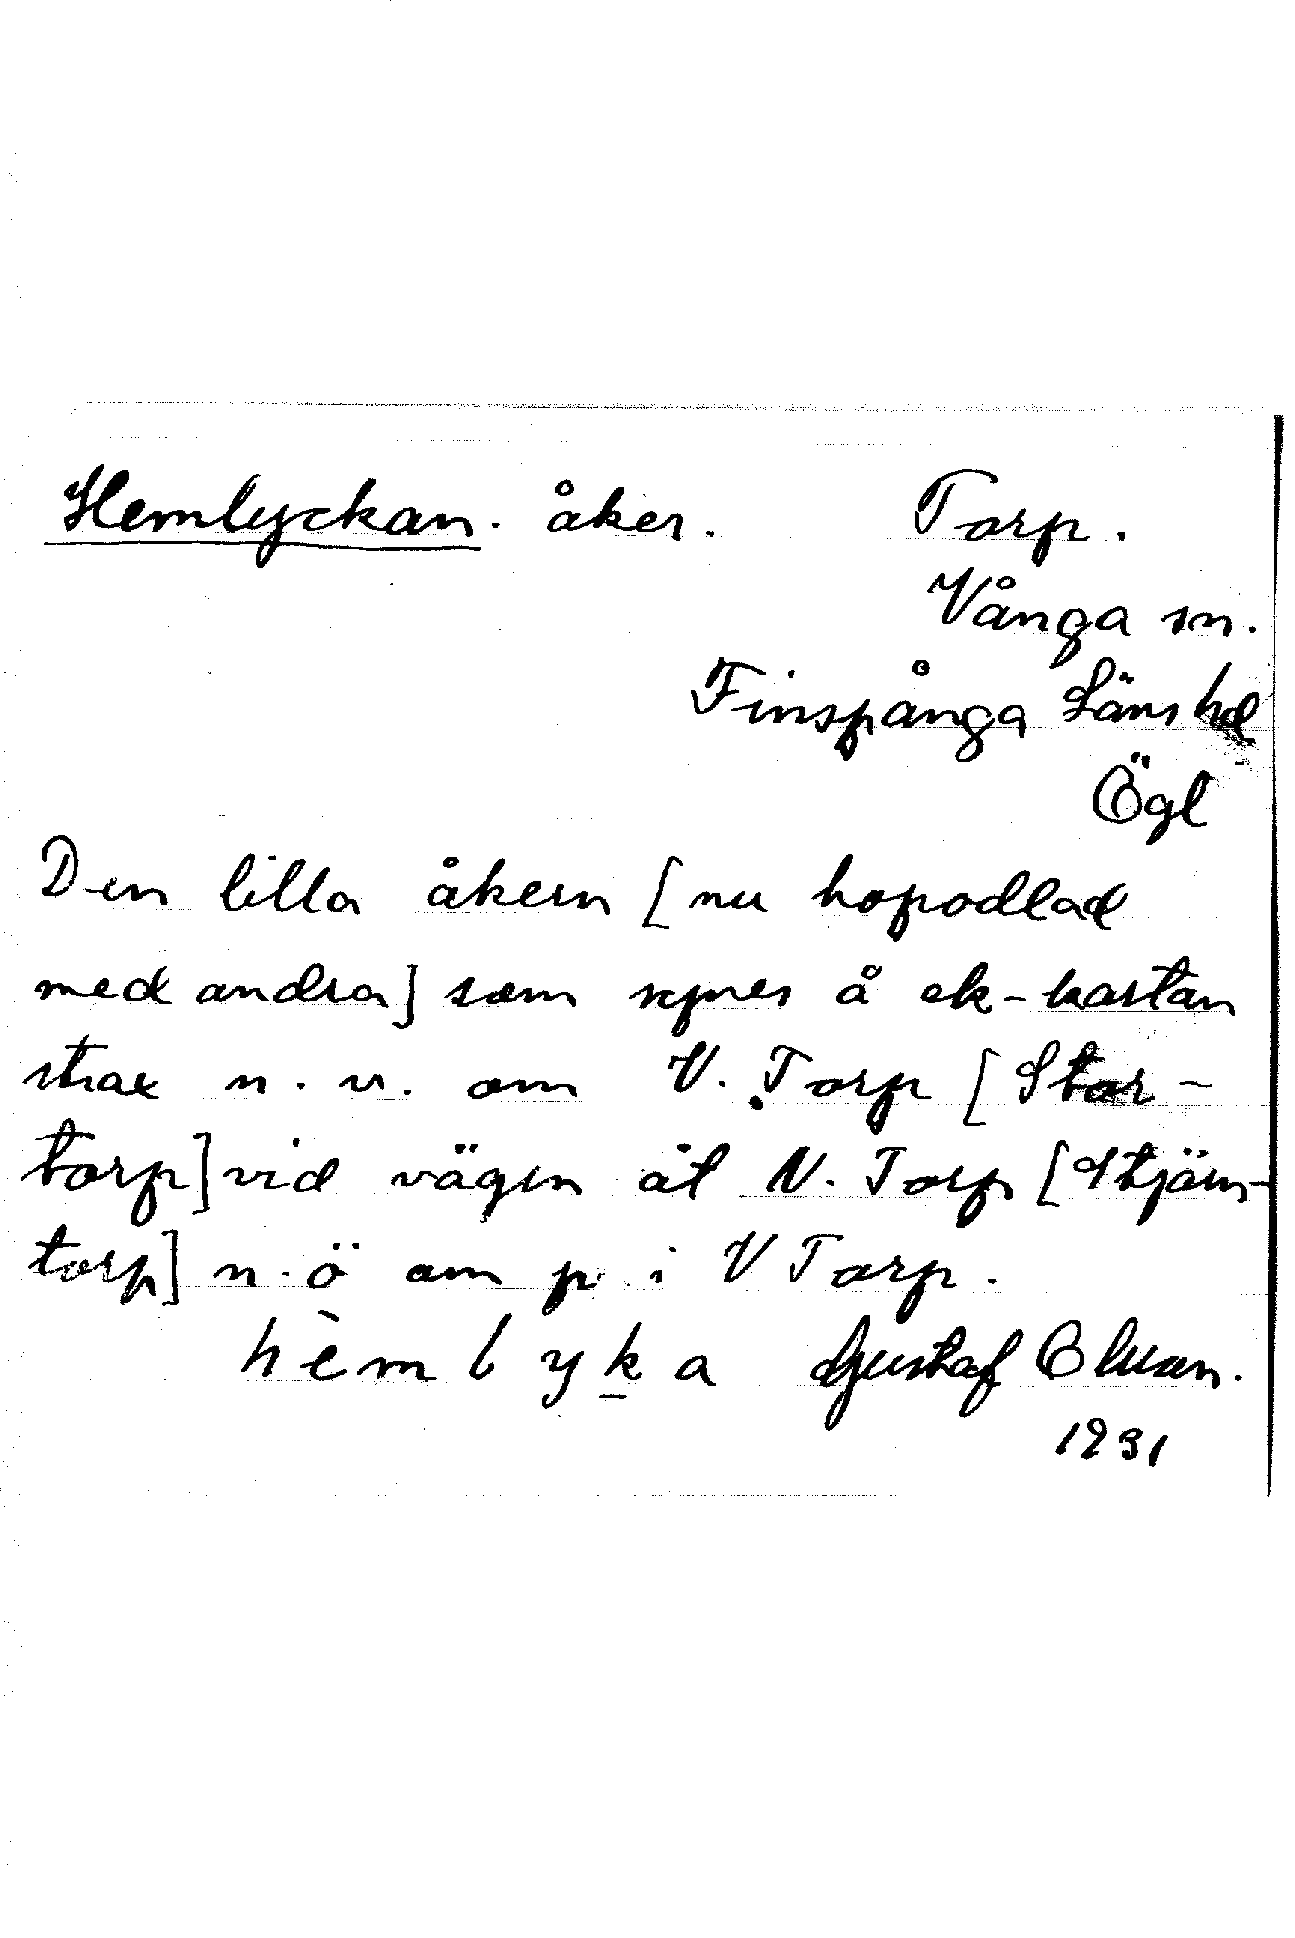 Hemlyckan. åker. Torp.
Vånga sn.
Finspånga Läns hd
Ögl
Den lilla åkern [nu hopodlad
med andra] som synes å ek-kartan
strax n. v. om V. Torp [Stor-
torp] vid vägen åt N. Torp [Stjärn-
torp] n. ö om p i V Torp.
hèmlyka Gustaf Olsson.
1931